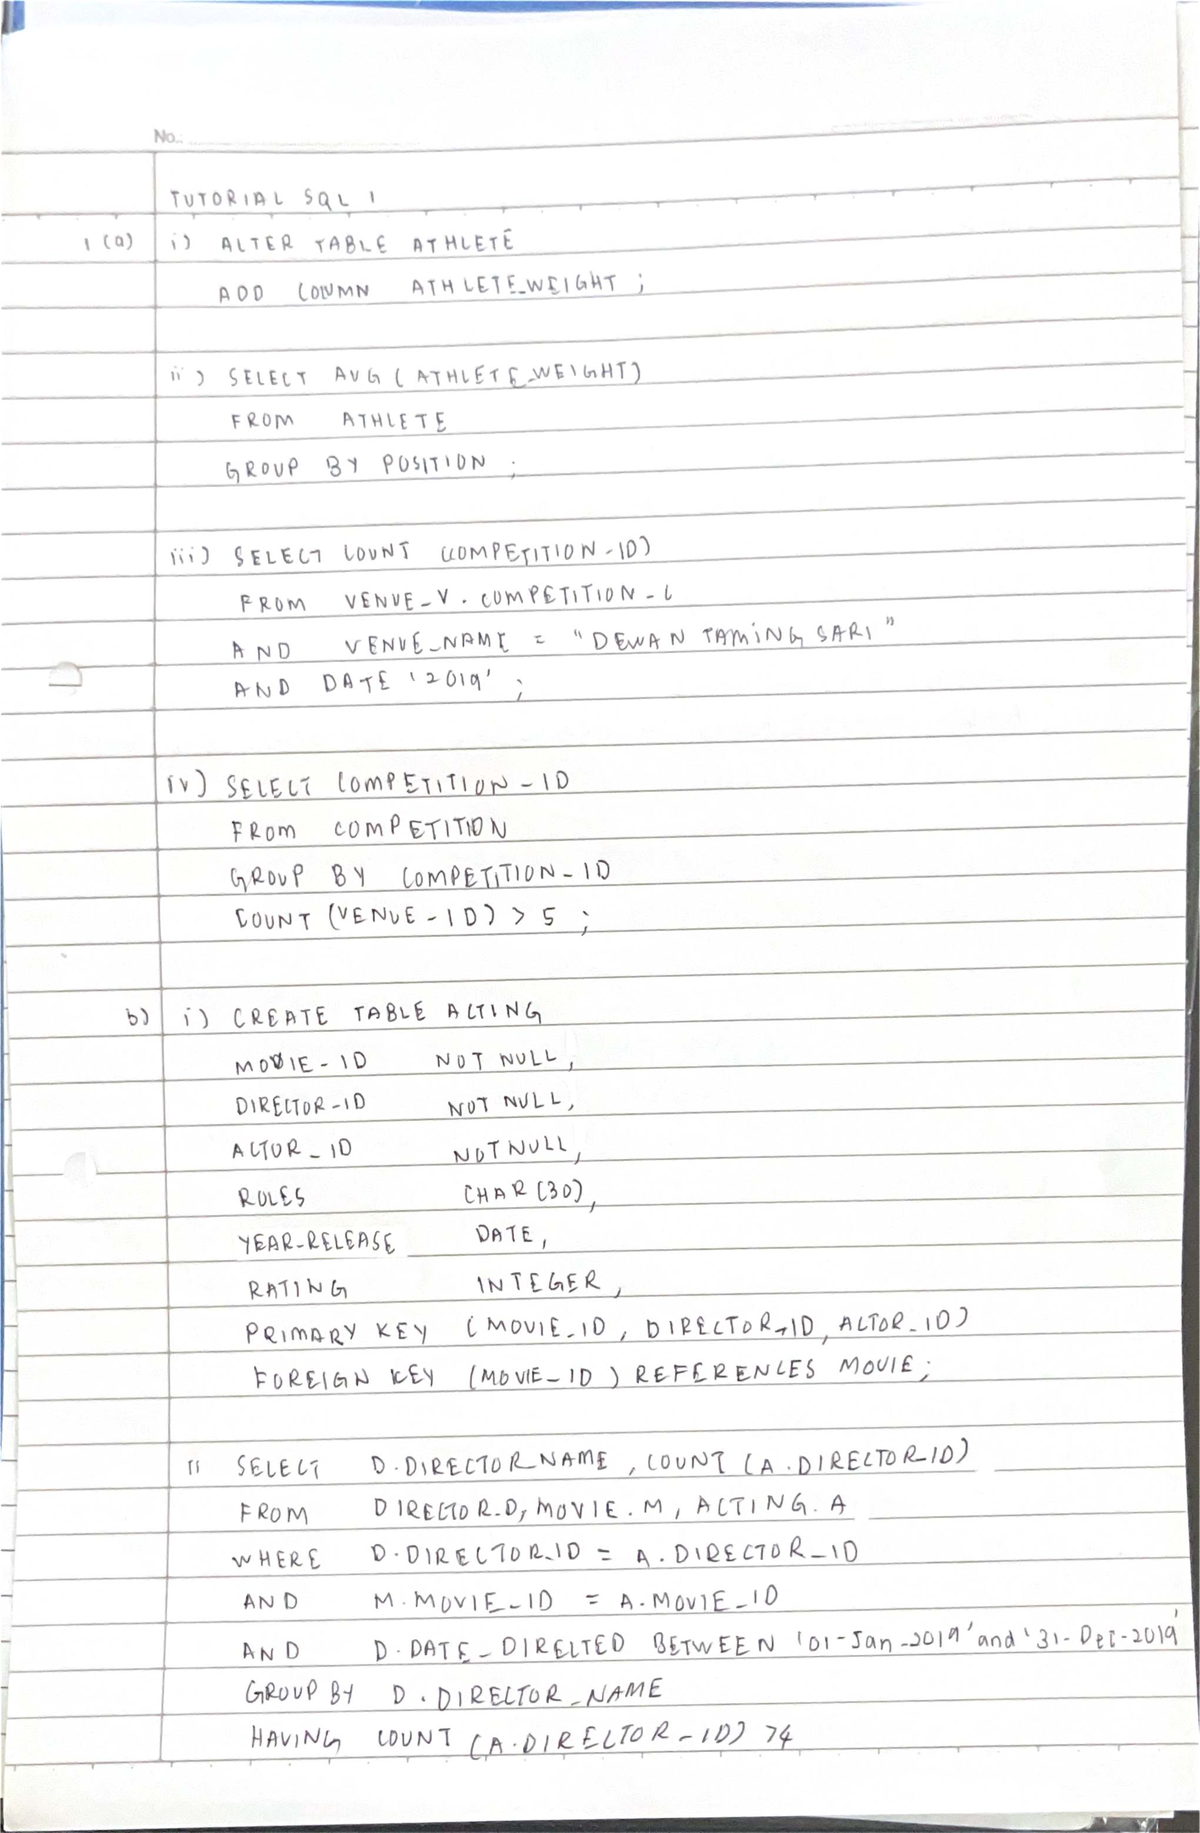 No.:
TUTORIAL SQL 1
1 (a) i) ALTER TABLE ATHLETE
ADD COLUMN ATHLETE_WEIGHT ;
ii) SELECT AVG (ATHLETE_WEIGHT)
FROM ATHLETE
GROUP BY POSITION ;
iii) SELECT COUNT (COMPETITION-ID)
FROM VENUE_V . COMPETITION - C
AND VENUE_NAME = "DEWAN TAMING SARI"
AND DATE '2019' ;
iv) SELECT COMPETITION - ID
FROM COMPETITION
GROUP BY COMPETITION - ID
COUNT (VENUE - ID) > 5 ;
b) i) CREATE TABLE ACTING
MOVIE - ID NOT NULL,
DIRECTOR - ID NOT NULL,
ACTOR _ ID NOT NULL,
ROLES CHAR (30),
YEAR-RELEASE DATE,
RATING INTEGER,
PRIMARY KEY (MOVIE_ID, DIRECTOR-ID, ACTOR_ID)
FOREIGN KEY (MOVIE_ID) REFERENCES MOVIE;
ii SELECT D.DIRECTOR_NAME, COUNT (A.DIRECTOR_ID)
FROM DIRECTOR.D, MOVIE.M, ACTING.A
WHERE D.DIRECTOR_ID = A.DIRECTOR_ID
AND M.MOVIE_ID = A.MOVIE_ID
AND D.DATE_DIRECTED BETWEEN '01-Jan-2019' and '31-Dec-2019'
GROUP BY D.DIRECTOR_NAME
HAVING COUNT (A.DIRECTOR-ID) >4